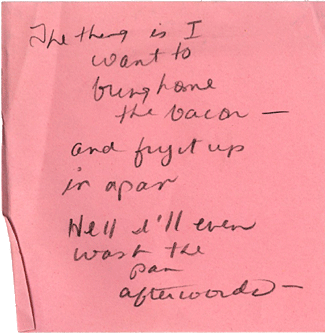 The thing is I
want to
bring home
the bacon —
and fry it up
in a pan
Hell I'll even
wash the
pan
afterwards —